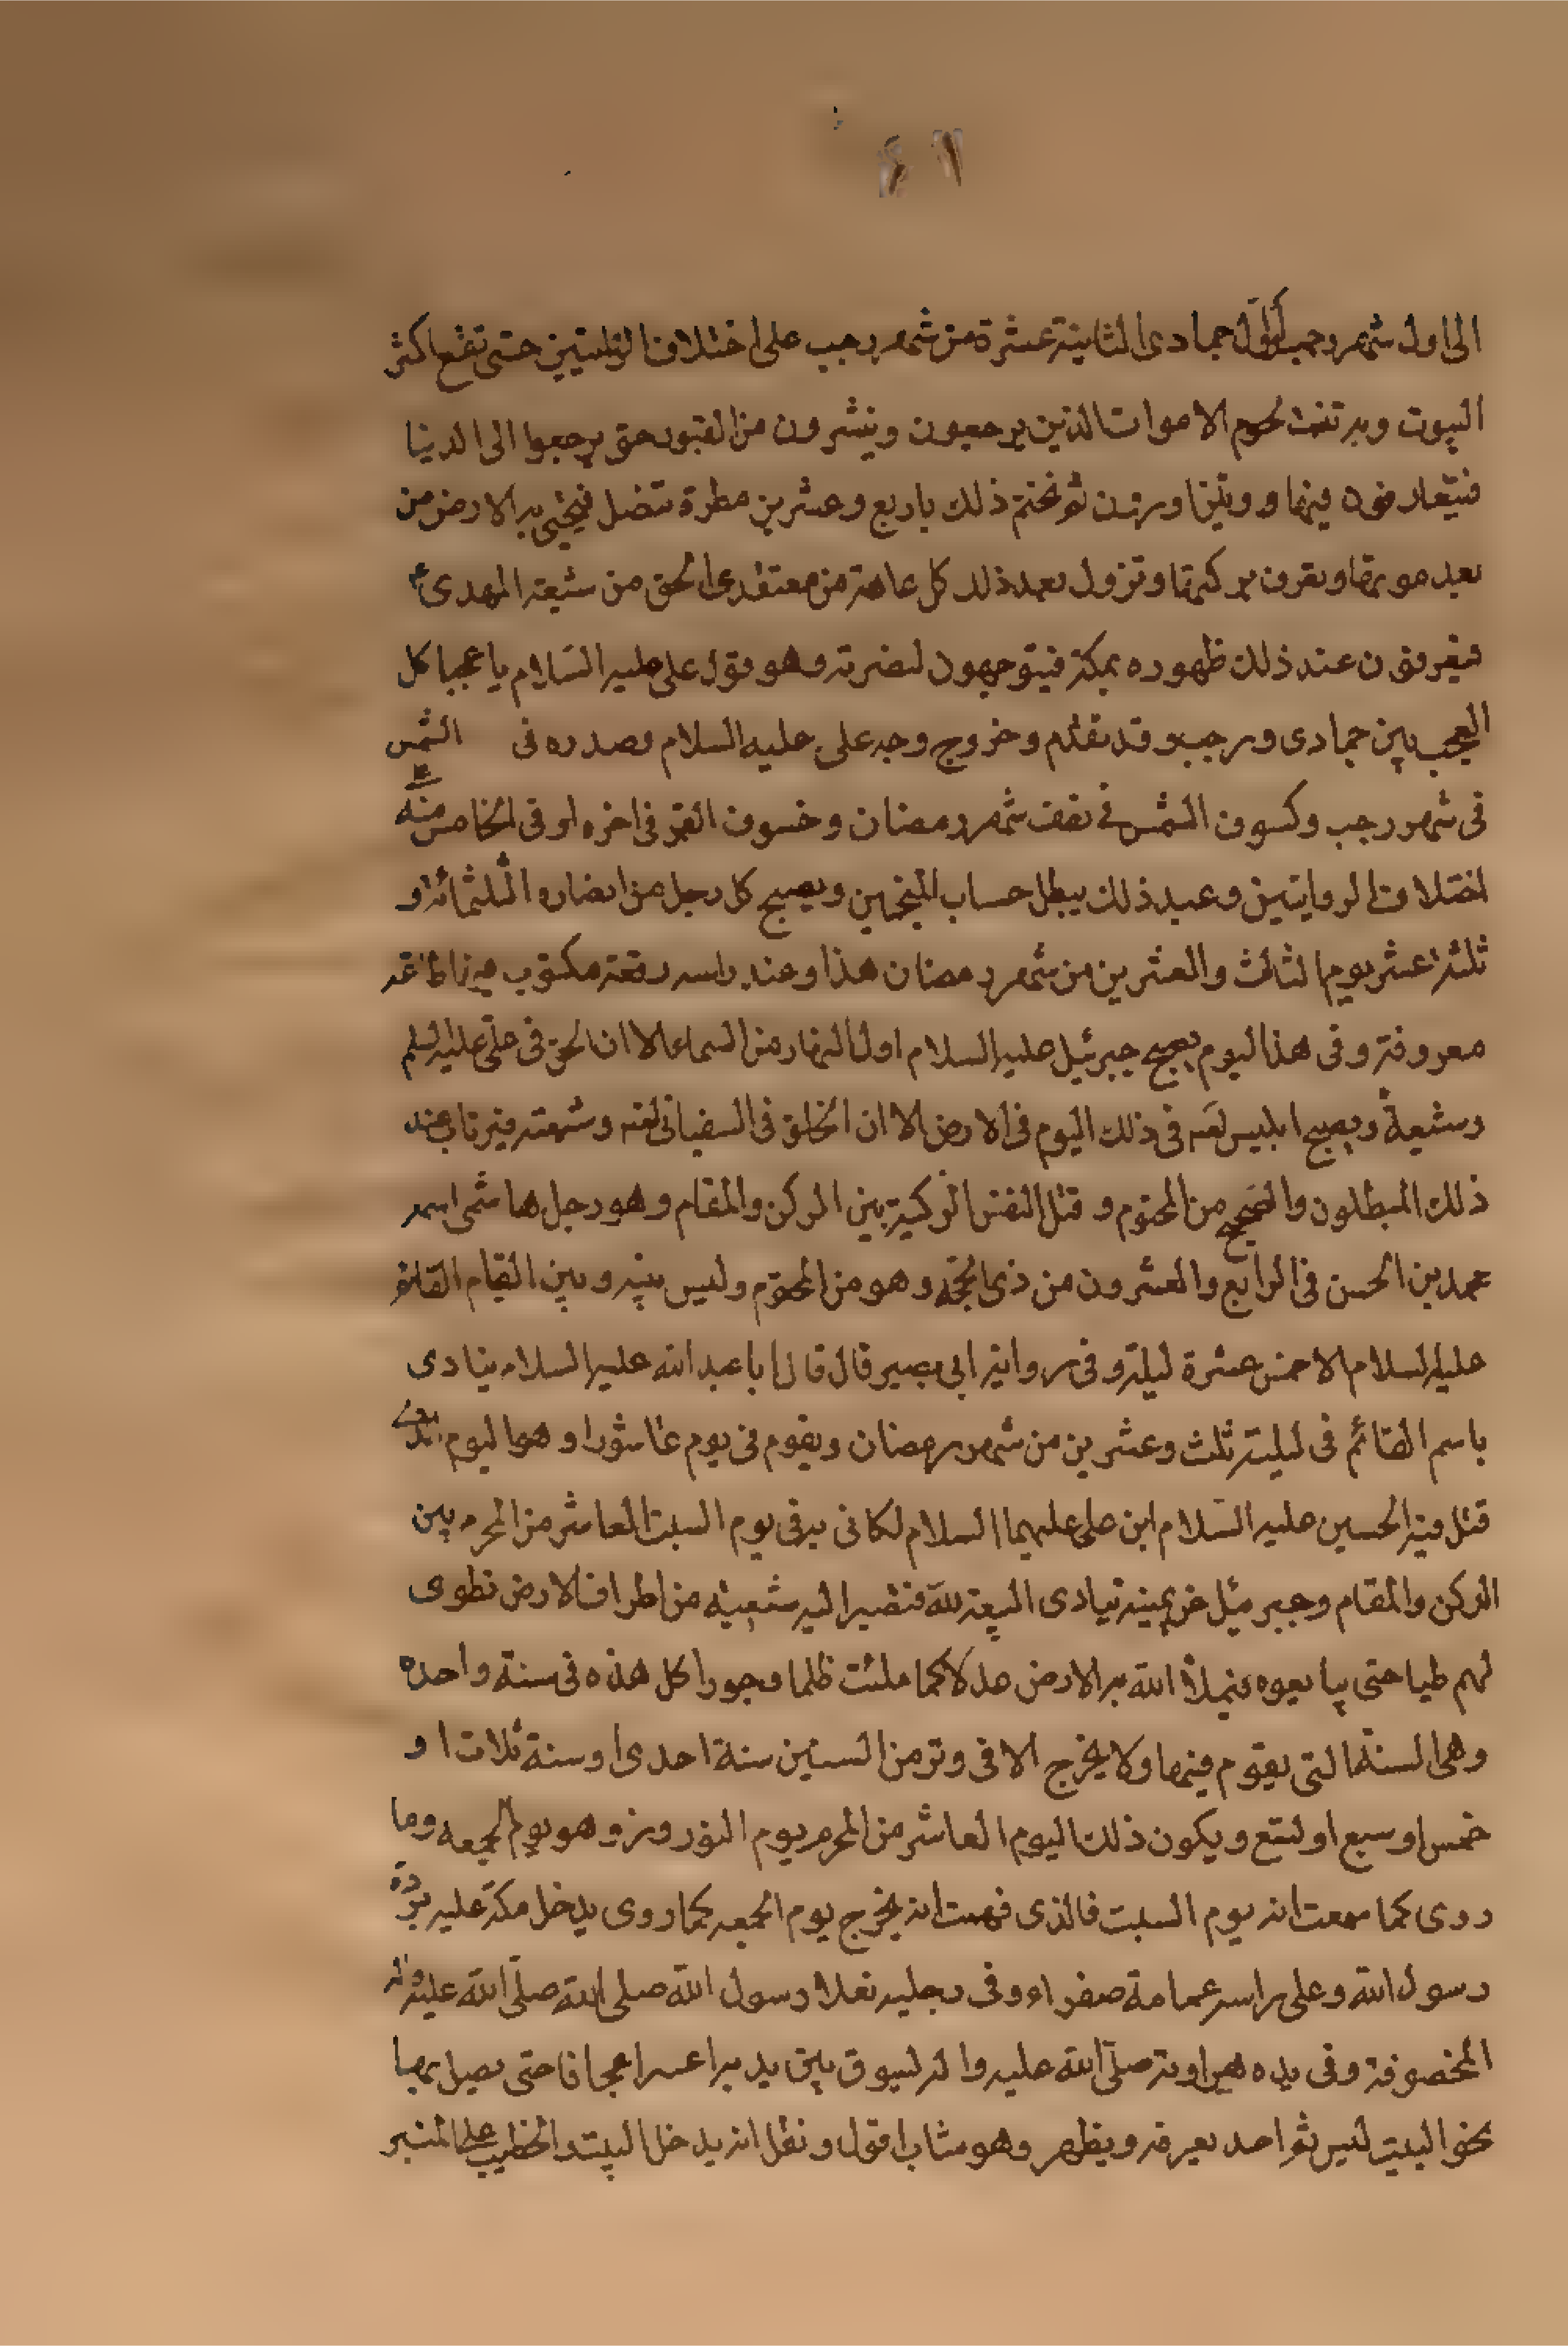 الى اول شهر رجب اول جمادى الثانية عشرة من شهر رجب على اختلاف الروايتين حتى تقع اكثر
البيوت وبه تنبت لحوم الاموات الذين يرجعون وينشرون من القبور حتى يرجعوا الى الدنيا
فيتعارفون فيها ويتزاورون ثم نختم ذلك باربع وعشرين مطرة تتصل فيحيى به الارض من
بعد موتها ويعرفون بركتها وتزول بعد ذلك كل عاهة من معتقدى الحق من شيعة المهدى ع
فيعرفون عند ذلك ظهوره بمكة فيتوجهون لنصرته وهو قول على عليه السلام يا عجبا كل
العجب بين جمادى ورجب وقد تقدم وخروج وجه على عليه السلام وصدره فى الشمس
فى شهر رجب وكسوف الشمس فى نصف شهر رمضان وخسوف القمر فى اخره او فى الخامس منه
اختلاف الروايتين وعند ذلك يبطل حساب المنجمين ويصبح كل رجل من انصاره الثلثمائة و
ثلثة عشر يوم الثالث والعشرين من شهر رمضان هذا وعند راسه رقعة مكتوب فيها طاعة
معروفة وفى هذا اليوم يصيح جبرئيل عليه السلام اول النهار من السماء الا ان الحق فى على عليه السلم
وشيعة ويصيح ابليس لعنه فى ذلك اليوم فى الارض الا ان الحق فى السفيانى لعنه وشيعته فيرتاب عند
ذلك المبطلون والصيحة من المحتوم وقتل النفس الزكية بين الركن والمقام وهو رجل هاشمى اسمه
محمد بن الحسن فى الرابع والعشرون من ذى الحجة وهو من المحتوم وليس بينه وبين القيام القائم
عليه السلام الا خمس عشرة ليلة وفى رواية ابى بصير قال قال ابا عبد الله عليه السلام ينادى
باسم القائم فى ليلة ثلث وعشرين من شهر رمضان ويقوم فى يوم عاشورا وهو اليوم الذى
قتل فيه الحسين عليه السلام ابن على عليهما السلام لكانى به فى يوم السبت العاشر من المحرم بين
الركن والمقام وجبرئيل عن يمينه ينادى البيعة لله فتصير اليه شيعته من اطراف الارض تطوى
لهم طيا حتى يبايعوه فيملأ الله به الارض عدلا كما ملئت ظلما وجورا كل هذه فى سنة واحده
وهى السنة التى يقوم فيها ولا يخرج الا فى وتر من السنين سنة احدى او سنة ثلاث او
خمس او سبع او تسع ويكون ذلك اليوم العاشر من المحرم يوم النوروز وهو يوم الجمعه وما
روى كما سمعت انه يوم السبت فالذى فهمت انه يخرج يوم الجمعه كما روى يدخل مكة عليه بردة
رسول الله وعلى راسه عمامة صفراء وفى رجليه نعلا رسول الله صلى الله صلى الله عليه واله
المخصوفة وفى يده هراوته صلى الله عليه واله يسوق بين يديه اعنزا عجافا حتى يصل بها
نحو البيت ليس ثم احد يعرفه ويظهر وهو شاب اقول ونقل انه يدخل البيت والخطيب على المنبر